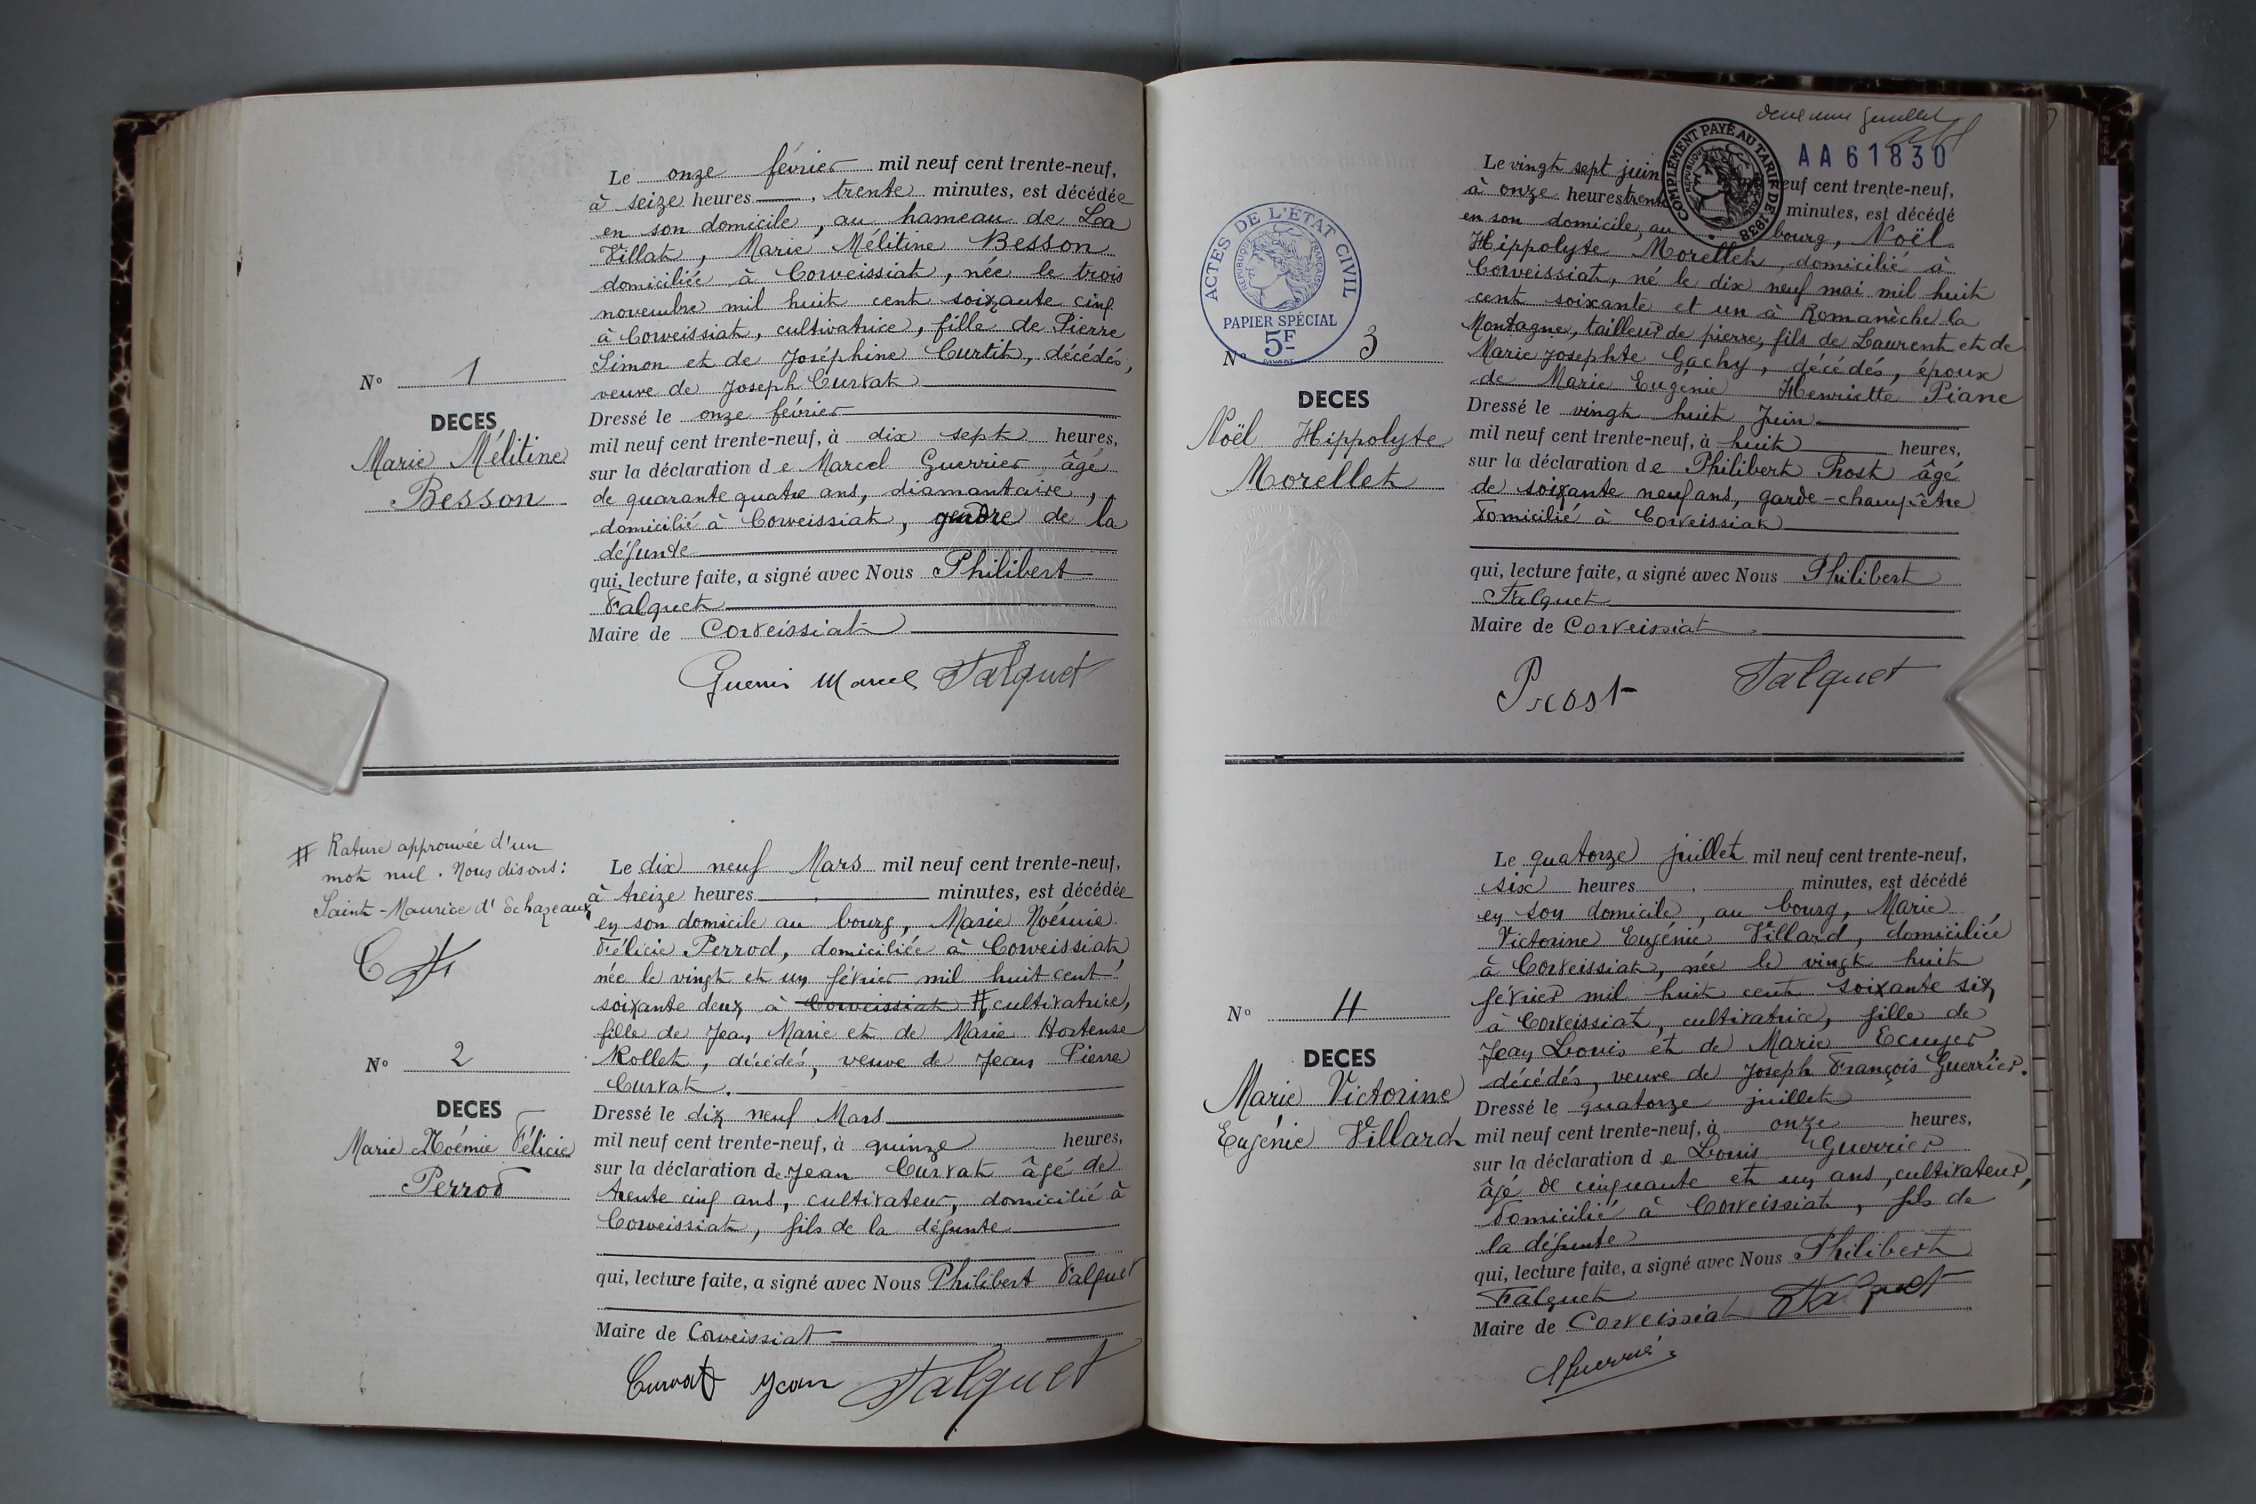 Le onze février mil neuf cent trente-neuf,
à seize heures, trente minutes, est décédée
en son domicile, au hameau de La
Villat, Marie Mélitine Besson
domiciliée à Corveissiat, née le trois
novembre mil huit cent soixante cinq
à Corveissiat, cultivatrice, fille de Pierre
Simon et de Joséphine Curtit, décédés,
veuve de Joseph Curvat
N° 1
DECES
Marie Mélitine
Besson
Dressé le onze février
mil neuf cent trente-neuf, à dix sept heures,
sur la déclaration de Marcel Guerrier âgé
de quarante quatre ans, diamantaire,
domicilié à Corveissiat, gendre de la
défunte
qui, lecture faite, a signé avec Nous Philibert
Falquet
Maire de Corveissiat
Guerrier Marcel Falquet
# Rature approuvée d'un
mot nul. Nous disons:
Saint-Maurice d'Echazeaux
Le dix neuf Mars mil neuf cent trente-neuf,
à treize heures, minutes, est décédée
en son domicile au bourg, Marie Noémie
Félicie Perrod, domiciliée à Corveissiat
née le vingt et un février mil huit cent
soixante deux à Corveissiat # cultivatrice,
fille de Jean Marie et de Marie Hortense
Rollet, décédés, veuve de Jean Pierre
Curvat.
N° 2
DECES
Marie Noémie Félicie
Perrod
Dressé le dix neuf Mars
mil neuf cent trente-neuf, à quinze heures,
sur la déclaration de Jean Curvat âgé de
trente cinq ans, cultivateur, domicilié à
Corveissiat, fils de la défunte
qui, lecture faite, a signé avec Nous Philibert Falquet
Maire de Corveissiat
Curvat Jean Falquet
deuxième feuillet
AA61830
COMPLÉMENT PAYÉ AU TARIF DE 1938
ACTES DE L'ÉTAT CIVIL
RÉPUBLIQUE FRANÇAISE
PAPIER SPÉCIAL
5F
Le vingt sept juin neuf cent trente-neuf,
à onze heures trente minutes, est décédé
en son domicile, au bourg, Noël
Hippolyte Morellet, domicilié à
Corveissiat, né le dix neuf mai mil huit
cent soixante et un à Romanèche la
Montagne, tailleur de pierre, fils de Laurent et de
Marie Josephte Gachy, décédés, époux
de Marie Eugénie Henriette Piane
N° 3
DECES
Noël Hippolyte
Morellet
Dressé le vingt huit Juin
mil neuf cent trente-neuf, à huit heures,
sur la déclaration de Philibert Prost âgé
de soixante neuf ans, garde-champêtre
domicilié à Corveissiat
qui, lecture faite, a signé avec Nous Philibert
Falquet
Maire de Corveissiat
Prost Falquet
Le quatorze juillet mil neuf cent trente-neuf,
six heures, minutes, est décédé
en son domicile, au bourg, Marie
Victorine Eugénie Villard, domiciliée
à Corveissiat, née le vingt huit
février mil huit cent soixante six
à Corveissiat, cultivatrice, fille de
Jean Louis et de Marie Ecuyer
décédés, veuve de Joseph François Guerrier.
N° 4
DECES
Marie Victorine
Eugénie Villard
Dressé le quatorze juillet
mil neuf cent trente-neuf, à onze heures,
sur la déclaration de Louis Guerrier
âgé de cinquante et un ans, cultivateur,
domicilié à Corveissiat, fils de
la défunte
qui, lecture faite, a signé avec Nous Philibert
Falquet
Maire de Corveissiat Falquet